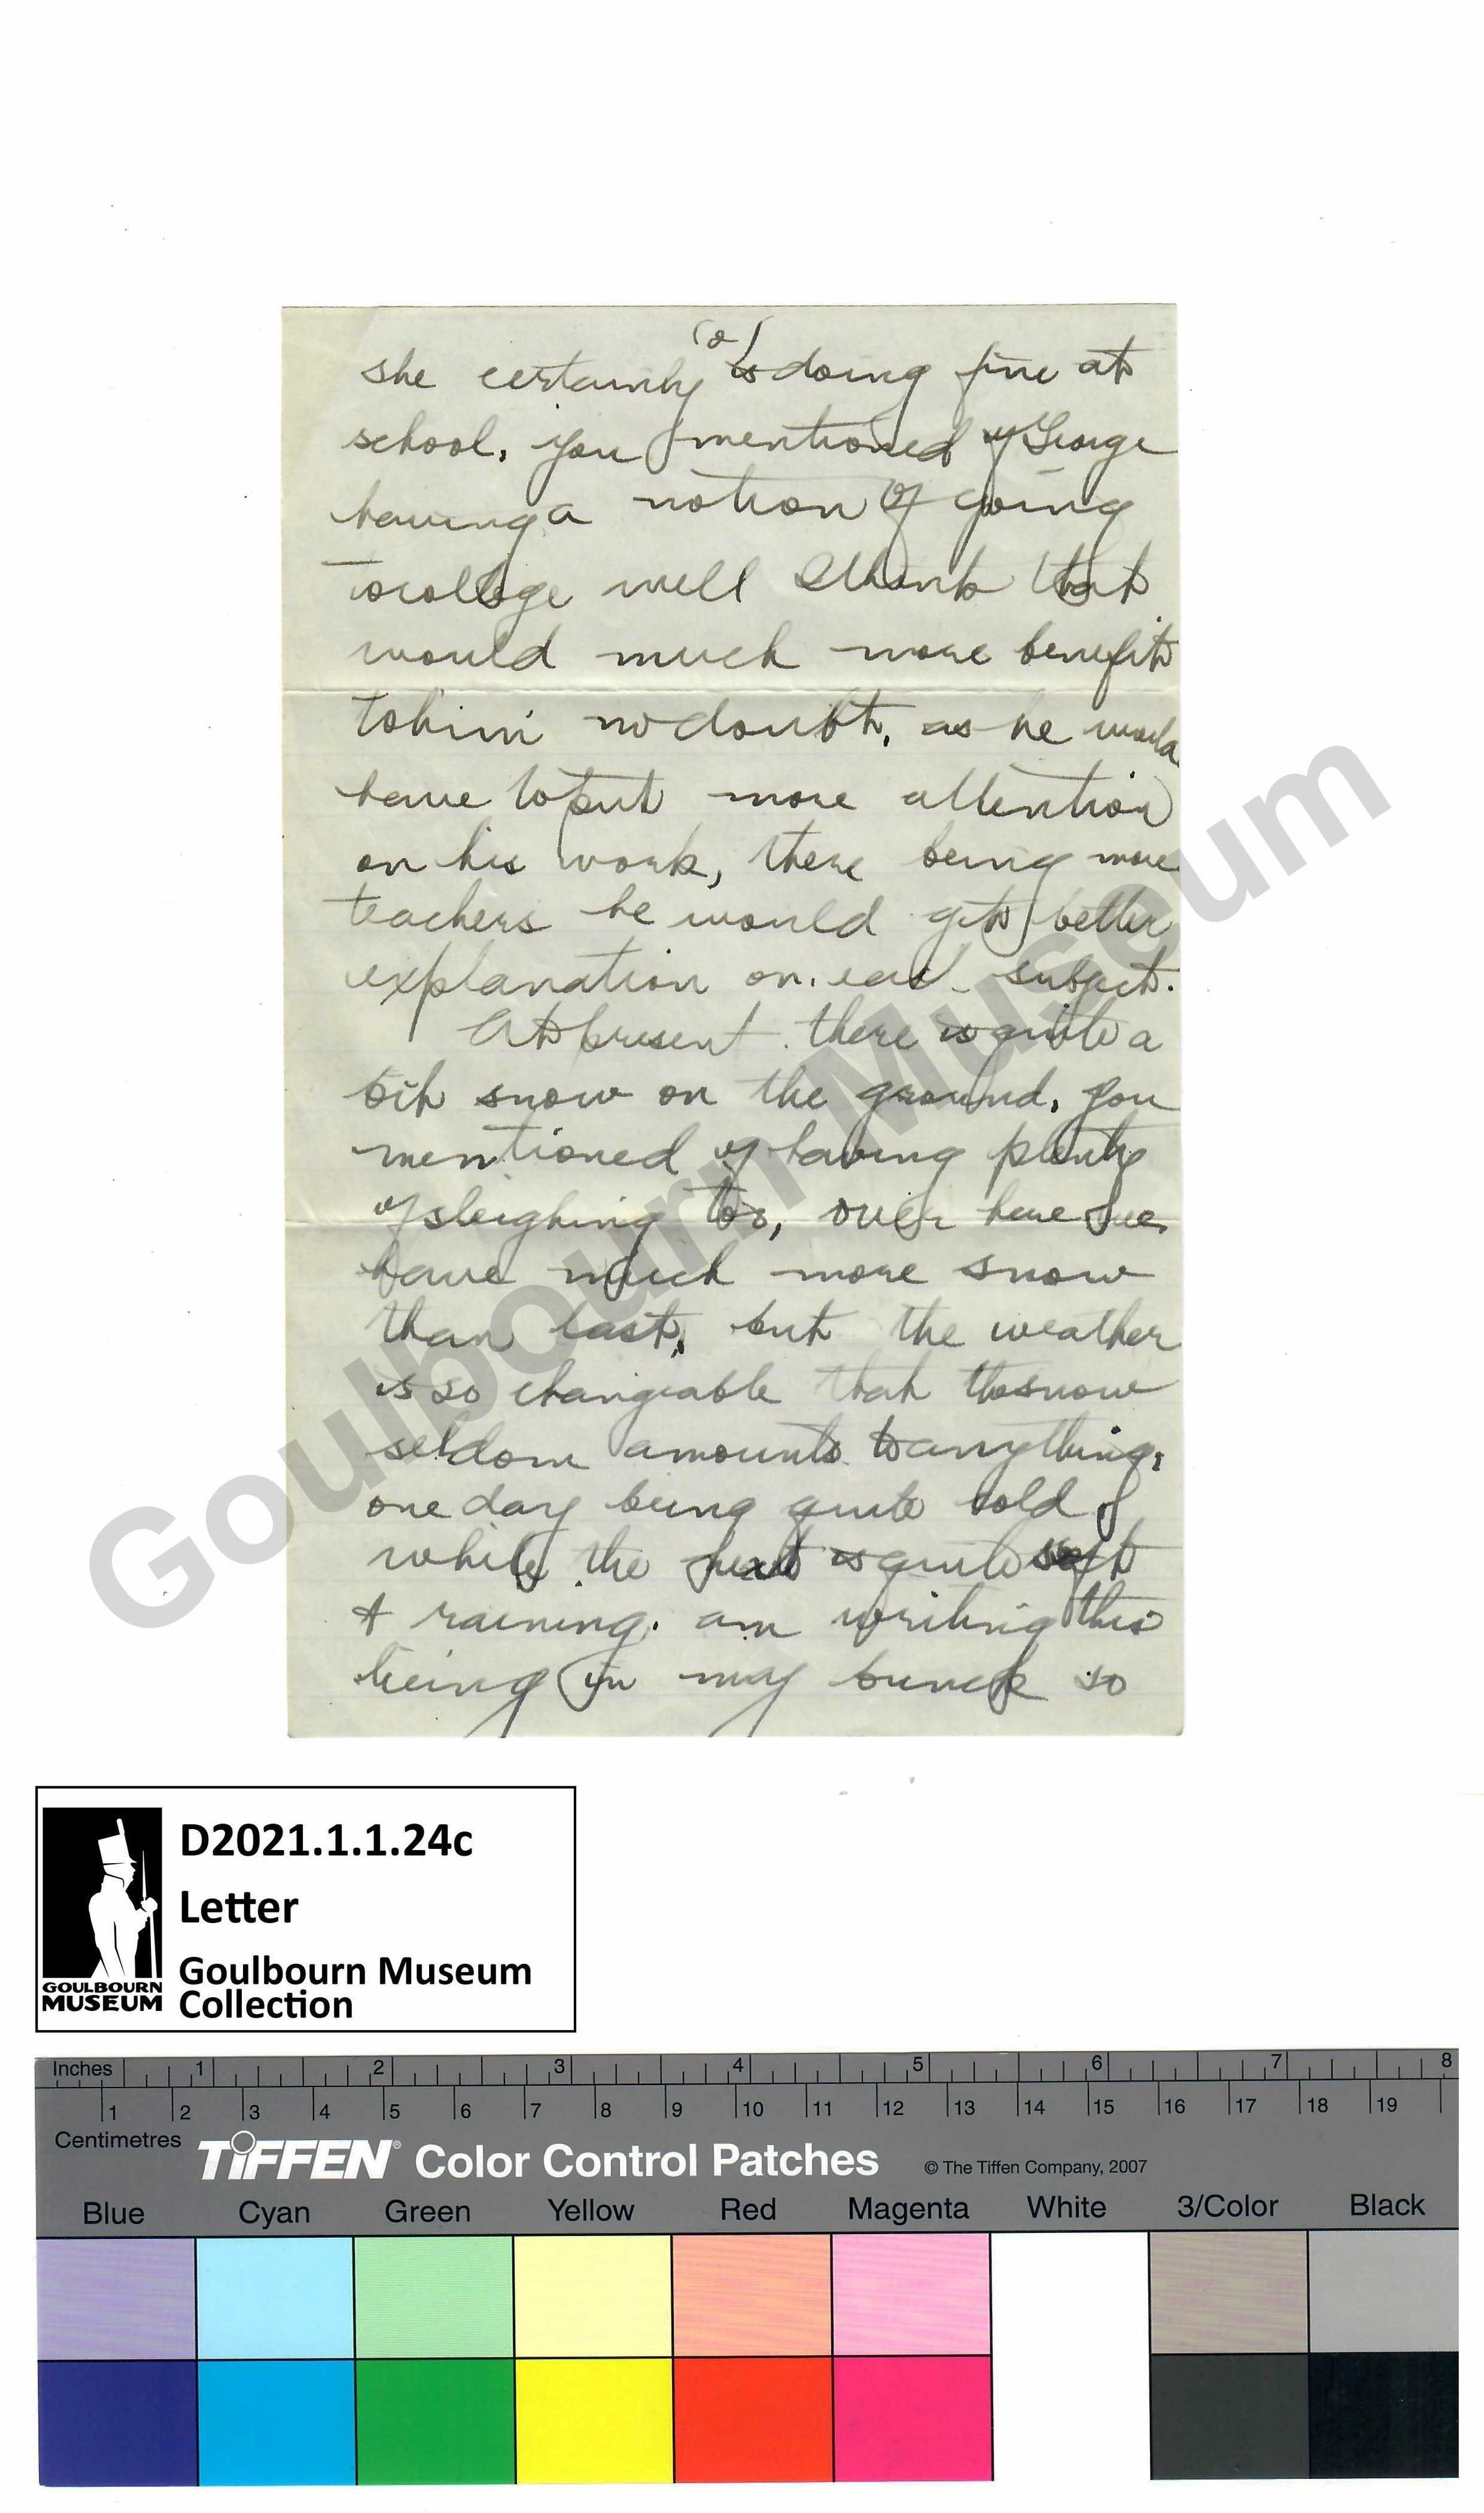 (2)
she certainly is doing fine at
school, you mentioned of George
having a notion of going
to college well I think that
would much more benefit
to him no doubt, as he would
have to put more attention
on his work, there being more
teachers he would get better
explanation on each subject.
At present there is quite a
bit snow on the ground, you
mentioned of having plenty
of sleighing too, over here we
have much more snow
than last, but the weather
is so changeable that the snow
seldom amounts to anything,
one day being quite cold
while the next is quite soft
& raining. am writing this
being in my bunck so
Goulbourn Museum
D2021.1.1.24c
Letter
Goulbourn Museum
Collection
GOULBOURN
MUSEUM
Inches 1 2 3 4 5 6 7 8
1 2 3 4 5 6 7 8 9 10 11 12 13 14 15 16 17 18 19
Centimetres
TIFFEN® Color Control Patches © The Tiffen Company, 2007
Blue Cyan Green Yellow Red Magenta White 3/Color Black